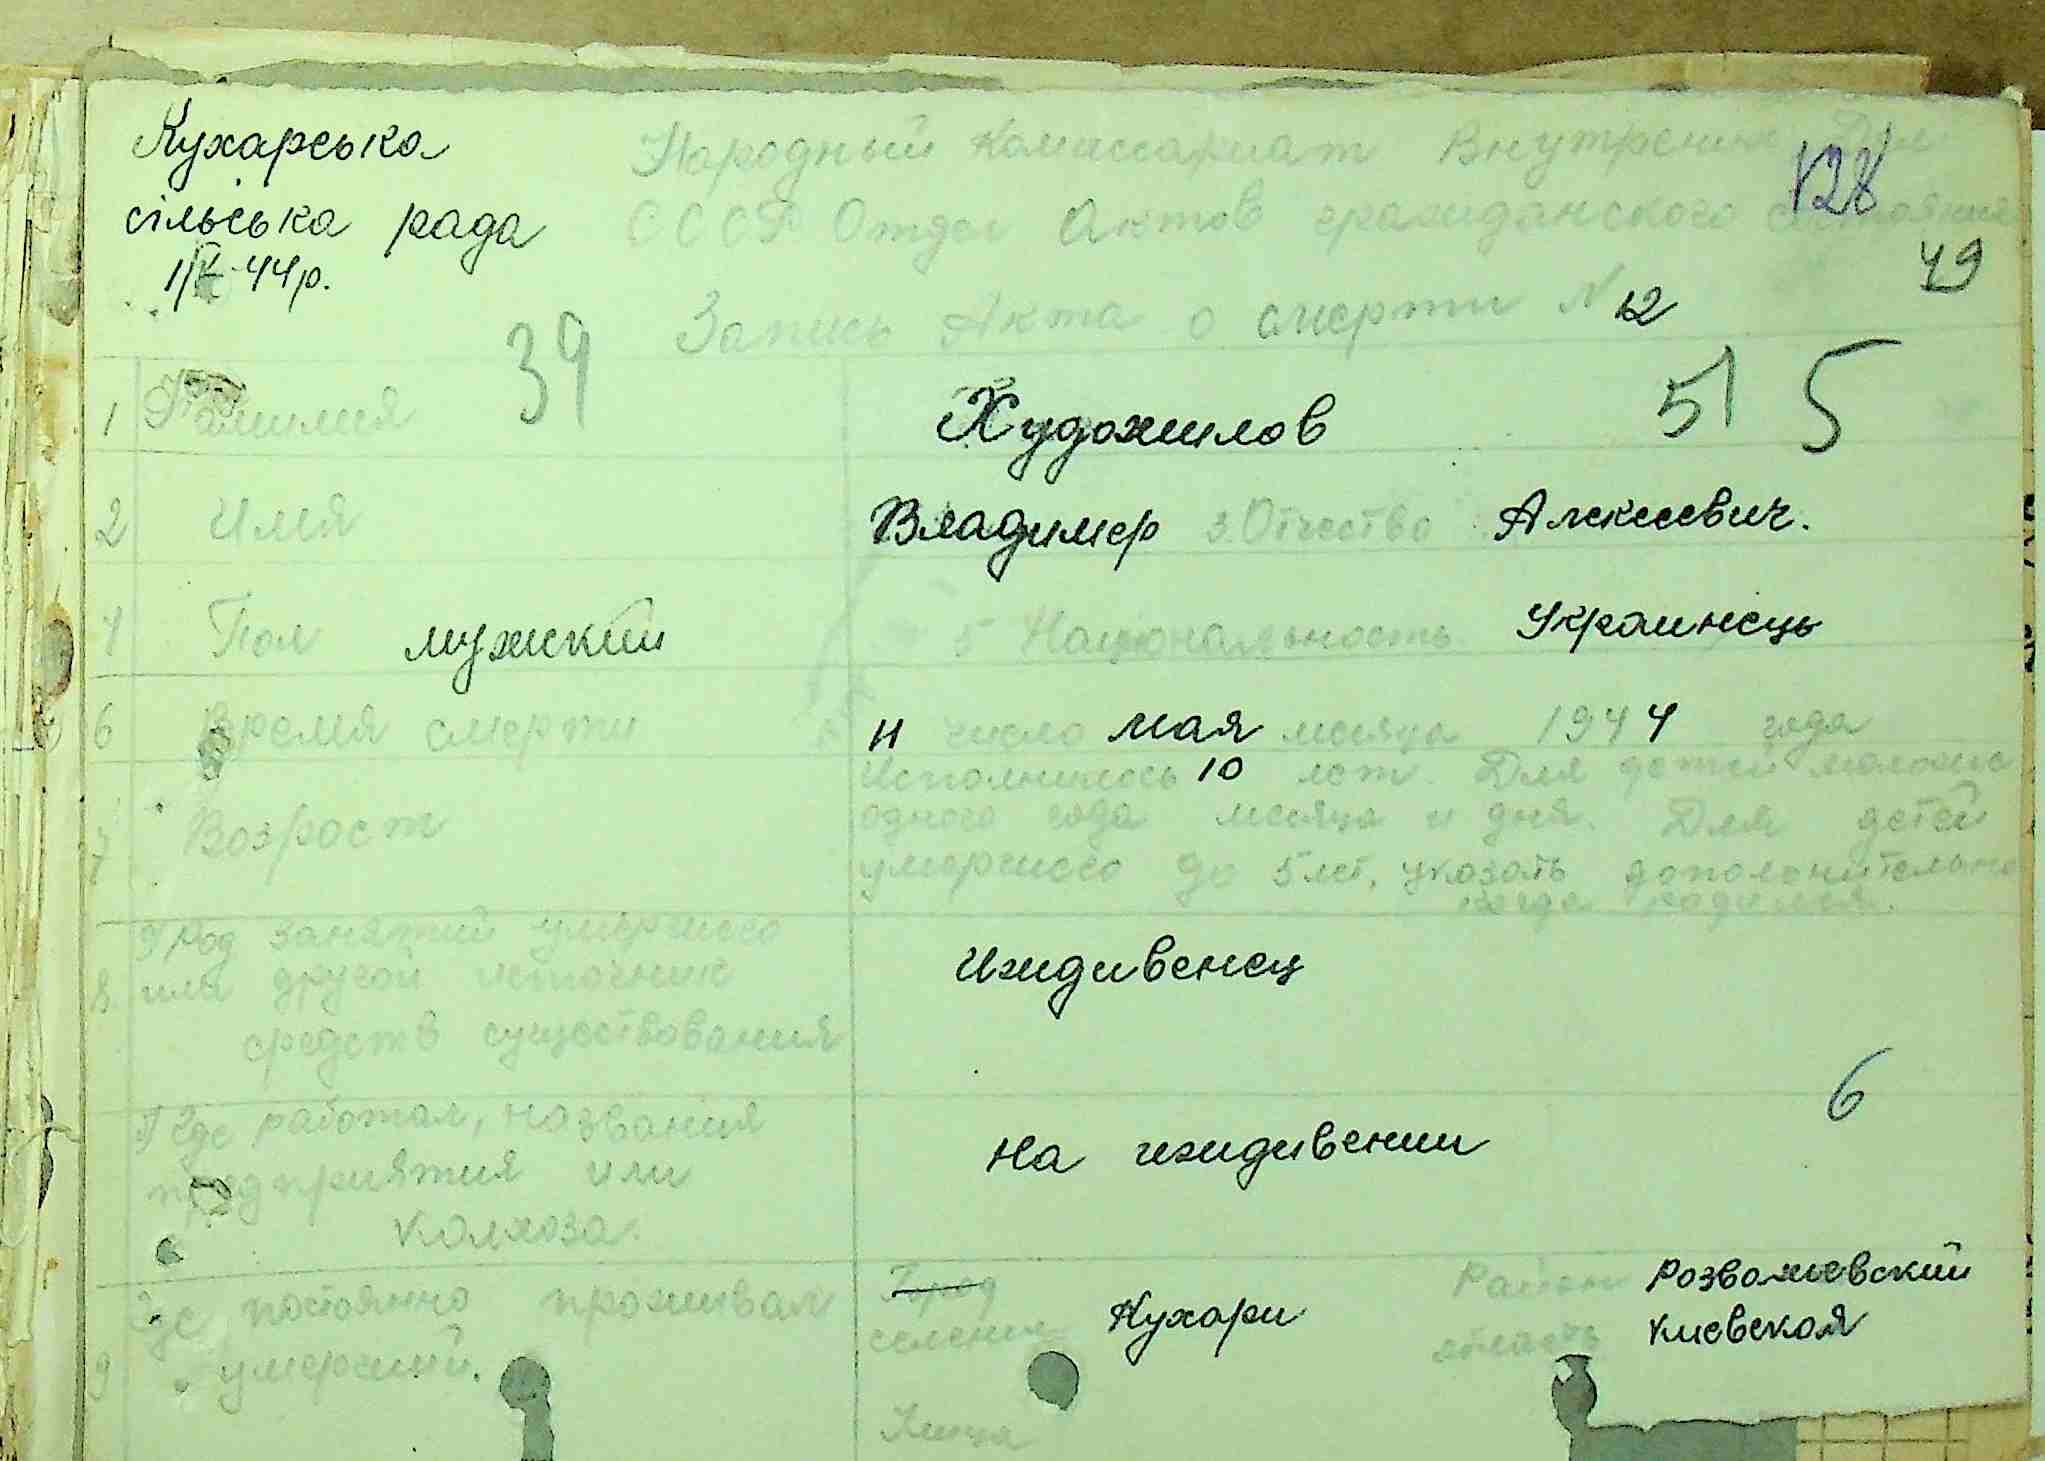 Кухарська
сільська рада
44р.
Народный Комиссариат Внутрених Дел
128
СССР Отдел Актов гражданского состояния
49
Запись Акта о смерти N 12
39
51 5
1 Фамилия Художилов
2 Имя Владимер 3. Отчество Алексеевич.
4 Пол мужский 5 Национальность Украинець
6 Время смерти 11 число мая месяца 1944 года
7 Возраст Исполнилось 10 лет. Для детей моложе
одного года месяца и дня. Для детей
умершего до 5 лет, указать дополнительно
когда родился.
8. Род занятий умершего
или другой источник
средств существования
Иждивенец
6
Где работал, название
предприятия или
колхоза.
На иждивении
9 Где постоянно проживал
умерший.
Город
селения Кухари
Район Розважевский
область Киевская
Улица